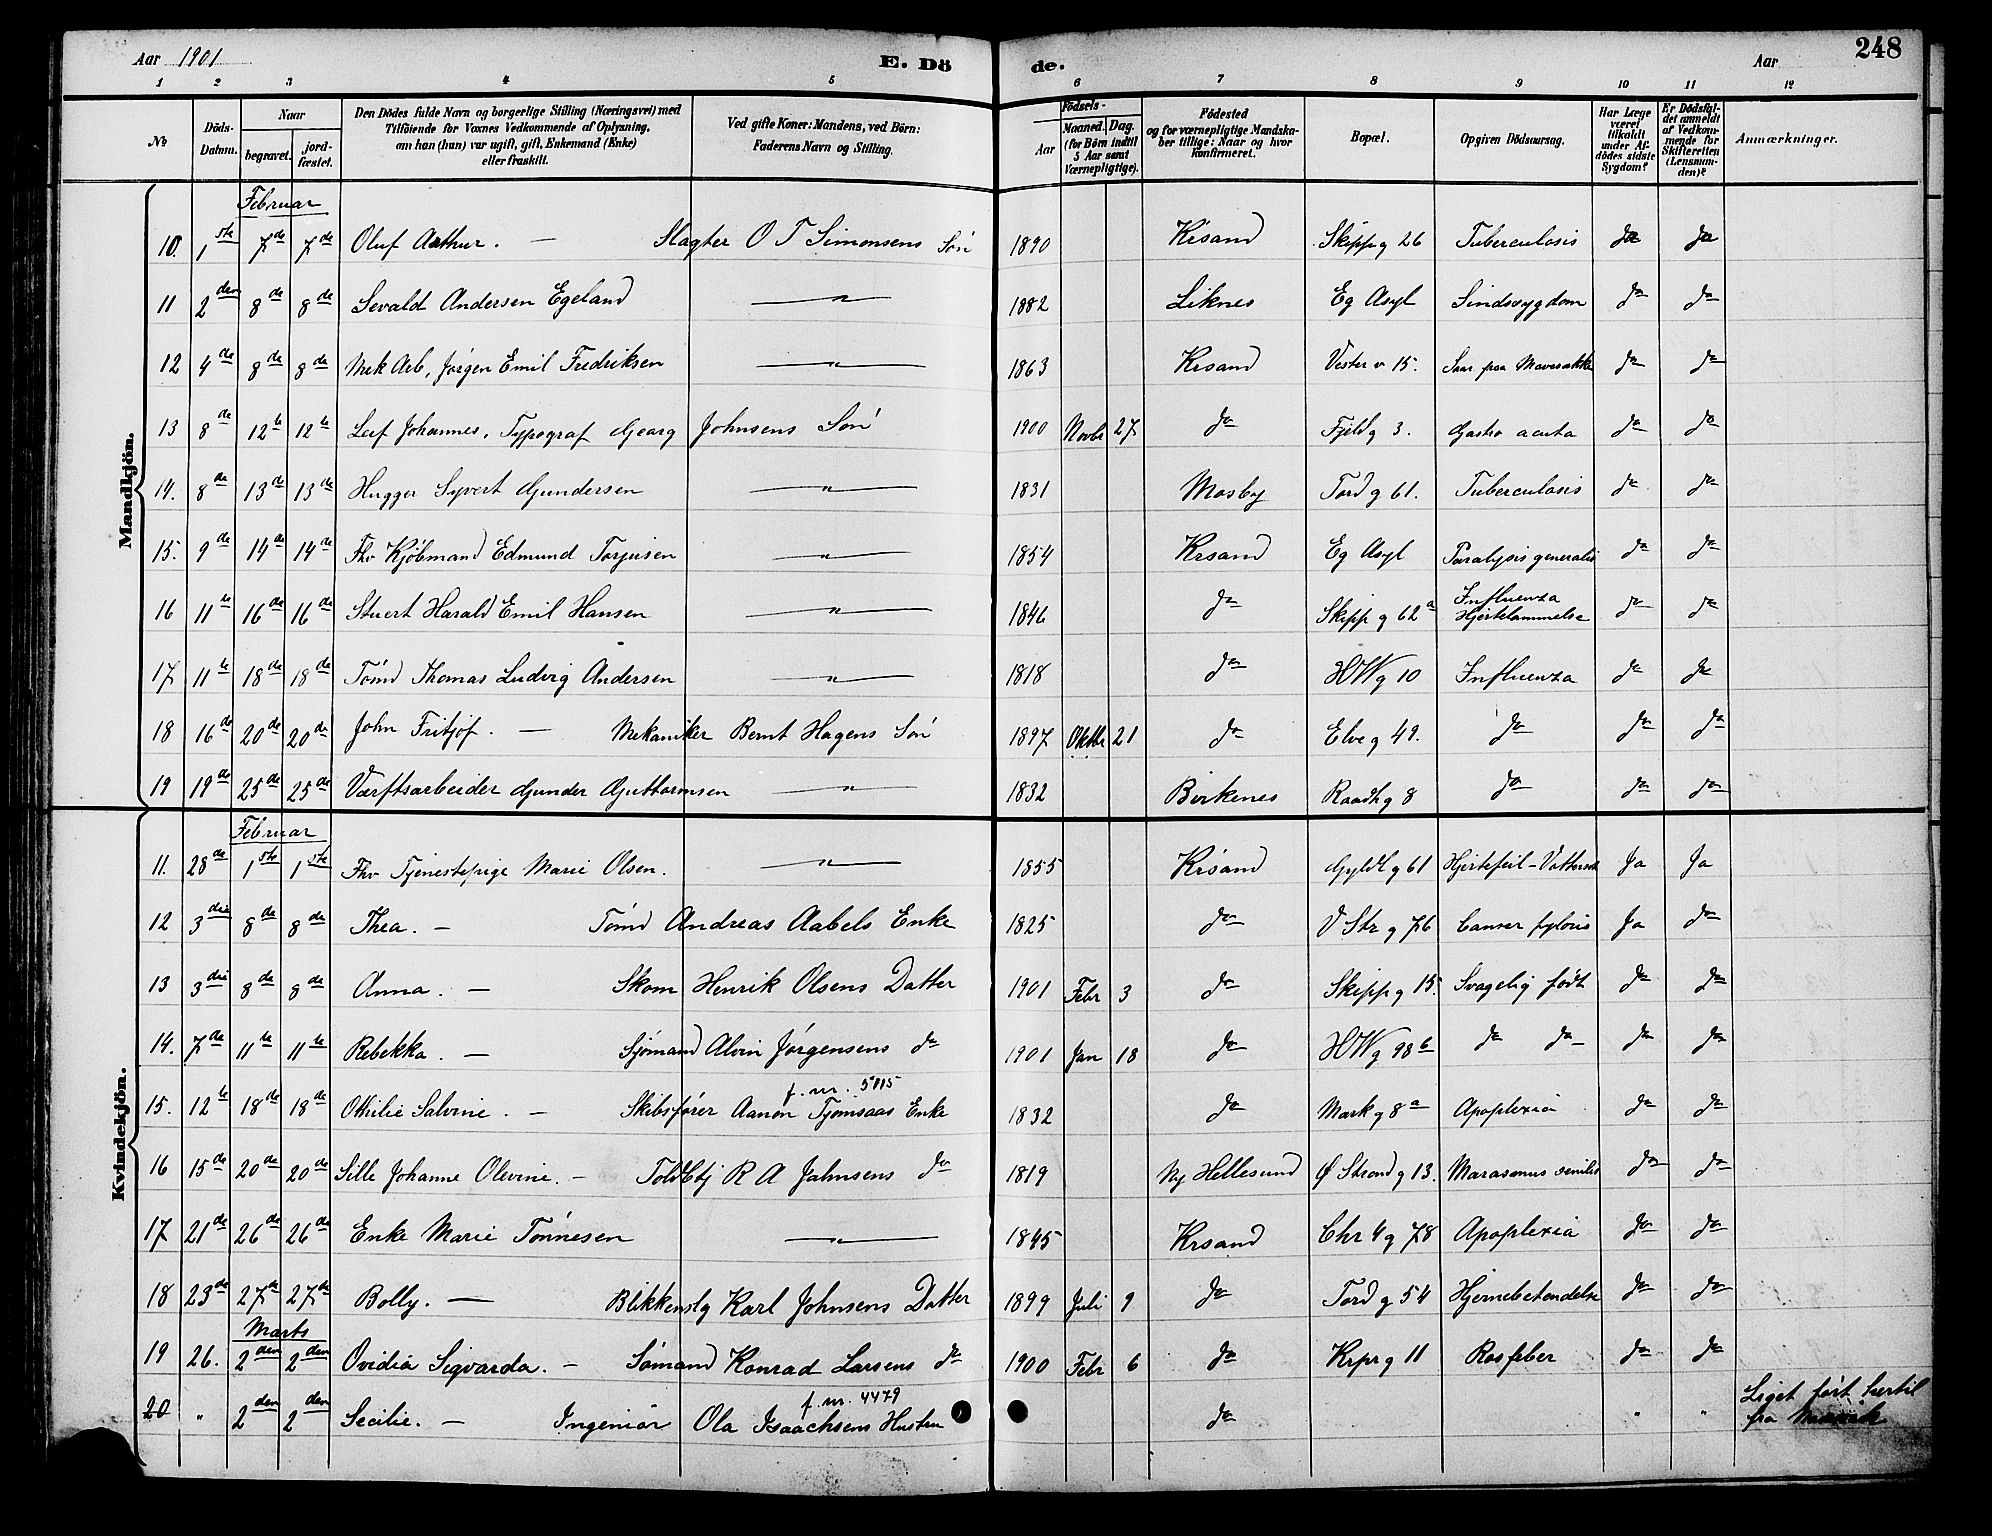 Aar 1901 E. Dö de. Aar 248
1 2 3 4 5 6 7 8 9 10 11 12
No Döds-Datum. Naar begravet. jord-fæstet. Den Dödes fulde Navn og borgerlige Stilling (Næringsvei) med Tilföiende for Voxnes Vedkommende af Oplysning, om han (hun) var ugift, gift, Enkemand (Enke) eller fraskilt. Ved gifte Koner: Mandens, ved Börn: Faderens Navn og Stilling. Födsels- Aar Maaned. Dag. (for Börn indtil 5 Aar samt Værnepligtige). Födested og for værnepligtige Mandska-ber tillige: Naar og hvor konfirmeret. Bopæl. Opgiven Dödsaarsag. Har Læge været tilkaldt under Af-dödes sidste Sygdom? Er Dödsfal-det anmeldt af Vedkom-mende for Skifteretten (Lensman-den)? Anmærkninger.
Mandkjön.
Februar
10. 1ste 7de 7de Oluf Arthur. — Slagter O T Simonsens Søn 1890 Krsand Skippg 26 Tuberculosis Ja Ja
11 2den 8de 8de Sevald Andersen Egeland — " — 1882 Liknes Eg Asyl Sindssygdom do do
12 4de 8de 8de Mek Arb, Jørgen Emil Fredriksen — " — 1863 Krsand Vester v 15. Saar paa Mavesækken do do
13 8de 12te 12te Leif Johannes, Typograf Georg Johnsens Søn 1900 Novbr 27 do Fjeldg 3. Gastro acuta do do
14. 8de 13de 13de Hugger Syvert Gundersen — " — 1831 Mosby Tord g 61. Tuberculosis do do
15. 9de 14de 14de Fhv Kjøbmand Edmund Torjusen — " — 1854 Krsand Eg Asyl Paralysis generalis do do
16 11te 16de 16de Stuert Harald Emil Hansen — " — 1846 do Skipp g 62a Influenza Hjertelammelse do do
17 11te 18de 18de Tømd Thomas Ludvig Andersen — " — 1818 do HWg 10 Influenza do do
18 16de 20de 20de John Fritjof. — Mekaniker Bernt Hagens Søn 1897 Oktbr 21 do Elve g 49. do do do
19 19de 25de 25de Værftsarbeider Gunder Guttormsen — " — 1832 Birkenes Raadhg 8 do do do
Kvindekjön.
Februar
11. 28de 1ste 1ste Fhv Tjenestepige Marie Olsen. — " — 1855 Krsand Gyldl g 61 Hjertefeil - Vattersot Ja Ja
12 3die 8de 8de Thea. — Tømd Andreas Aabels Enke 1825 do V Str g 76 Cancer pyloris Ja do
13 3die 8de 8de Anna. — Skom Henrik Olsens Datter 1901 Febr 3 do Skippg 15. Svagelig født do do
14. 7de 11te 11te Rebekka. — Sjømand Alvin Jørgensens do 1901 Jan 18 do HWg 98b do do do do
15. 12te 18de 18de Othilie Salvine. — Skibsfører Aanon Tjomsaas Enke f. nr. 5115 1832 do Mark g 8a Apoplexia do do
16 15de 20de 20de Sille Johanne Olevine. — Toldbtj R A Jahnsens do 1819 Ny Hellesund Ø Strand g 13. Marasmus senilis do do
17 21de 26de 26de Enke Marie Tønnesen — " — 1845 Krsand Chr 4 g 78 Apoplexia do do
18 23de 27de 27de Bolly. — Blikkenslg Karl Johnsens Datter 1899 Juli 9 do Tord g 54 Hjernebetendelse do do
Marts
19 26. 2den 2den Ovidia Sigvarda. — Sømand Konrad Larsens do 1900 Febr 6 do Krprg 11 Rosfeber do do
20 " 2den 2den Secilie. — Ingeniør Ola Isaachsens Hustru f. nr. 4479 do " " Liget ført hertil fra